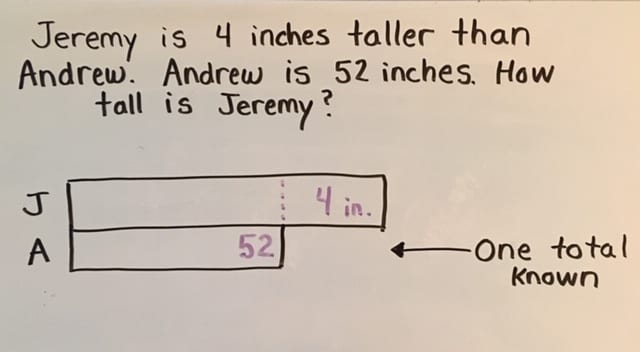 Jeremy is 4 inches taller than
Andrew. Andrew is 52 inches. How
tall is Jeremy?
J
4 in.
A
52
One total
Known